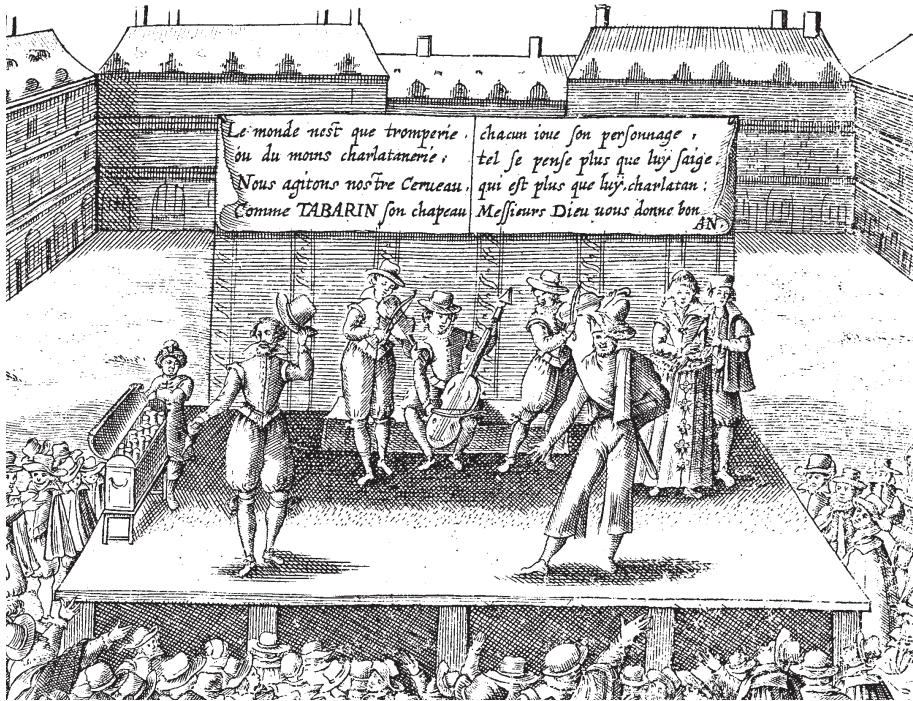 Le monde nest que tromperie,
ou du moins charlatanerie,
Nous agitons nostre Cerueau,
Comme TABARIN son chapeau
chacun ioue son personnage,
tel se pense plus que luy saige,
qui est plus que luy, charlatan:
Messieurs Dieu uous donne bon
AN.